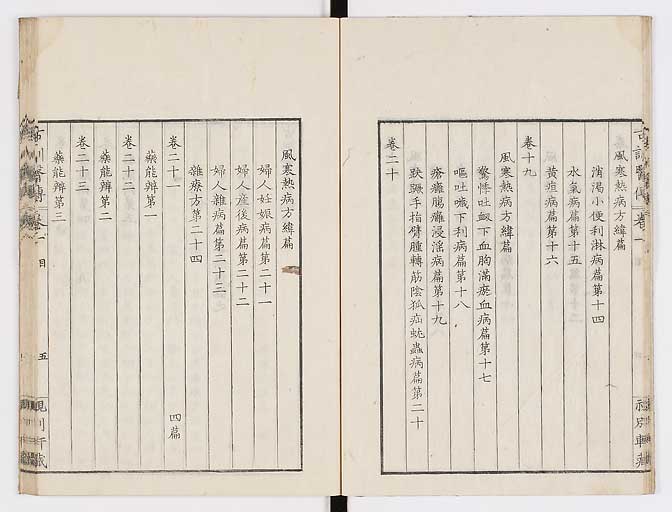 風寒熱病方緯篇
消渴小便利淋病篇第十四
水氣病篇第十五
黃疸病篇第十六
卷十九
風寒熱病方緯篇
驚悸吐衄下血胸滿瘀血病篇第十七
嘔吐噦下利病篇第十八
瘡癰腸癰浸淫病篇第十九
趺蹶手指臂腫轉筋陰狐疝蚘蟲病篇第二十
卷二十
風寒熱病方緯篇
婦人妊娠病篇第二十一
婦人產後病篇第二十二
婦人雜病篇第二十三
雜療方第二十四
卷二十一 四篇
藥能辨第一
卷二十二
藥能辨第二
卷二十三
藥能辨第三
目 五